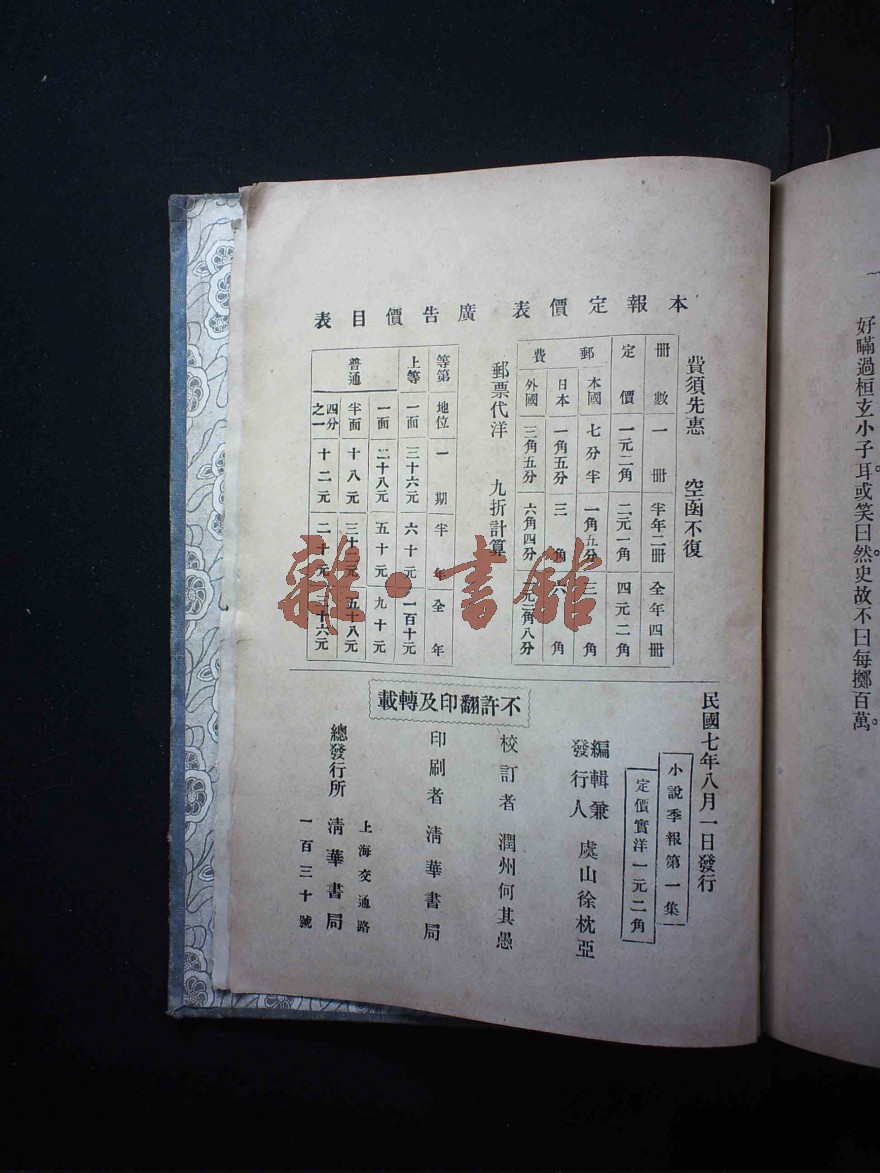 本報定價表
費須先惠 空函不復
冊數 一冊 半年二冊 全年四冊
定價 一元二角 二元一角 四元二角
郵費
本國 七分半 一角五分 三角
日本 一角五分 三角 六角
外國 三角五分 六角四分 元二角八分
郵票代洋 九折計算
廣告價目表
等第 地位 一期 半年 全年
上等 一面 三十六元 六十元 一百十元
普通
一面 二十八元 五十元 九十元
半面 十八元 三十元 五十八元
四分之一 十二元 二十元 三十六元
民國七年八月一日發行
小說季報第一集
定價實洋一元二角
編輯兼發行人 虞山徐枕亞
校訂者 潤州何其愚
印刷者 清華書局
總發行所 清華書局
上海交通路
一百三十號
不許翻印及轉載
好瞞過桓玄小子耳。或笑曰。然史故不曰每擲百萬。
雜·書館